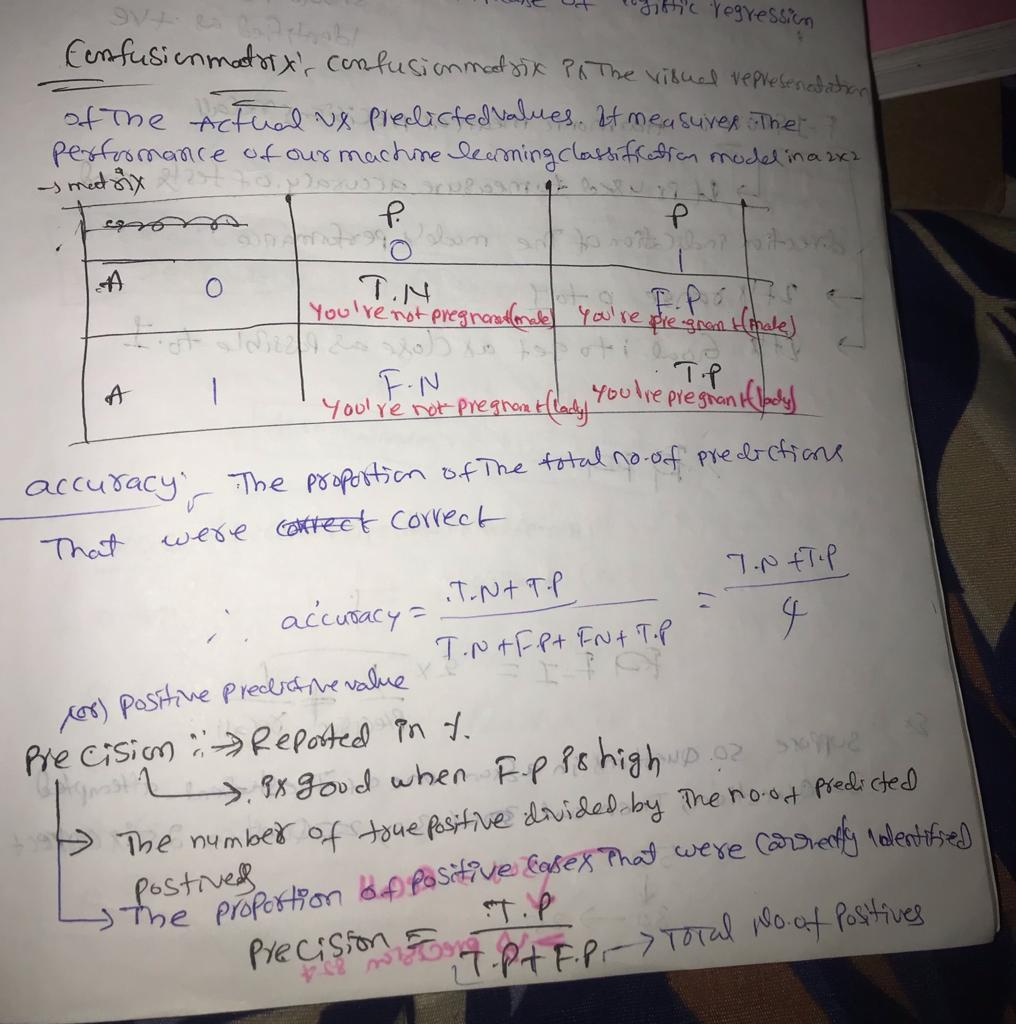 of logistic regression
Confusionmatrix:- Confusionmatrix is The visual representation
of The Actual vs Predictedvalues. It measures The
Performance of our machine learning classification model in a 2x2
→ matrix
P. P
0 1
A 0 T.N F.P
You're not pregnant(male) You're pregnant(male)
A 1 F.N T.P
You're not pregnant(lady) You're pregnant(lady)
accuracy:- The proportion of The total no.of predictions
That were correct correct
∴ accuracy = T.N+T.P / T.N+F.P+F.N+T.P = T.N+T.P / 4
(or) positive predictive value
Precision :→ Reported in %.
→ is good when F.P is high
→ The number of true positive divided by The no.of predicted
postives
→ The proportion of positive cases That were correctly identified
Precision = T.P / T.P+F.P → Total No.of Positives